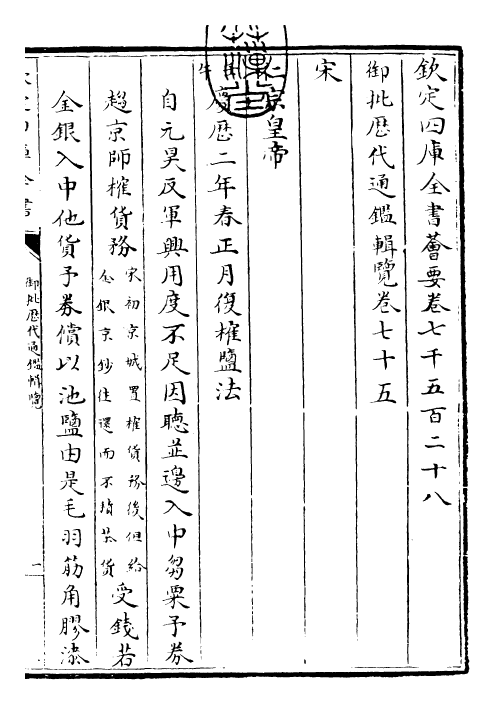 欽定四庫全書薈要卷七千五百二十八
御批歷代通鑑輯覽卷七十五
宋
仁宗皇帝
慶歷二年春正月復榷鹽法
自元昊反軍興用度不足因聽並邊入中芻粟予券
趨京師榷貨務
宋初京城置榷貨務後但給
金銀京鈔往還而不積茶貨
受錢若
金銀入中他貨予券償以池鹽由是毛羽筋角膠漆
御批歷代通鑑輯覽
一